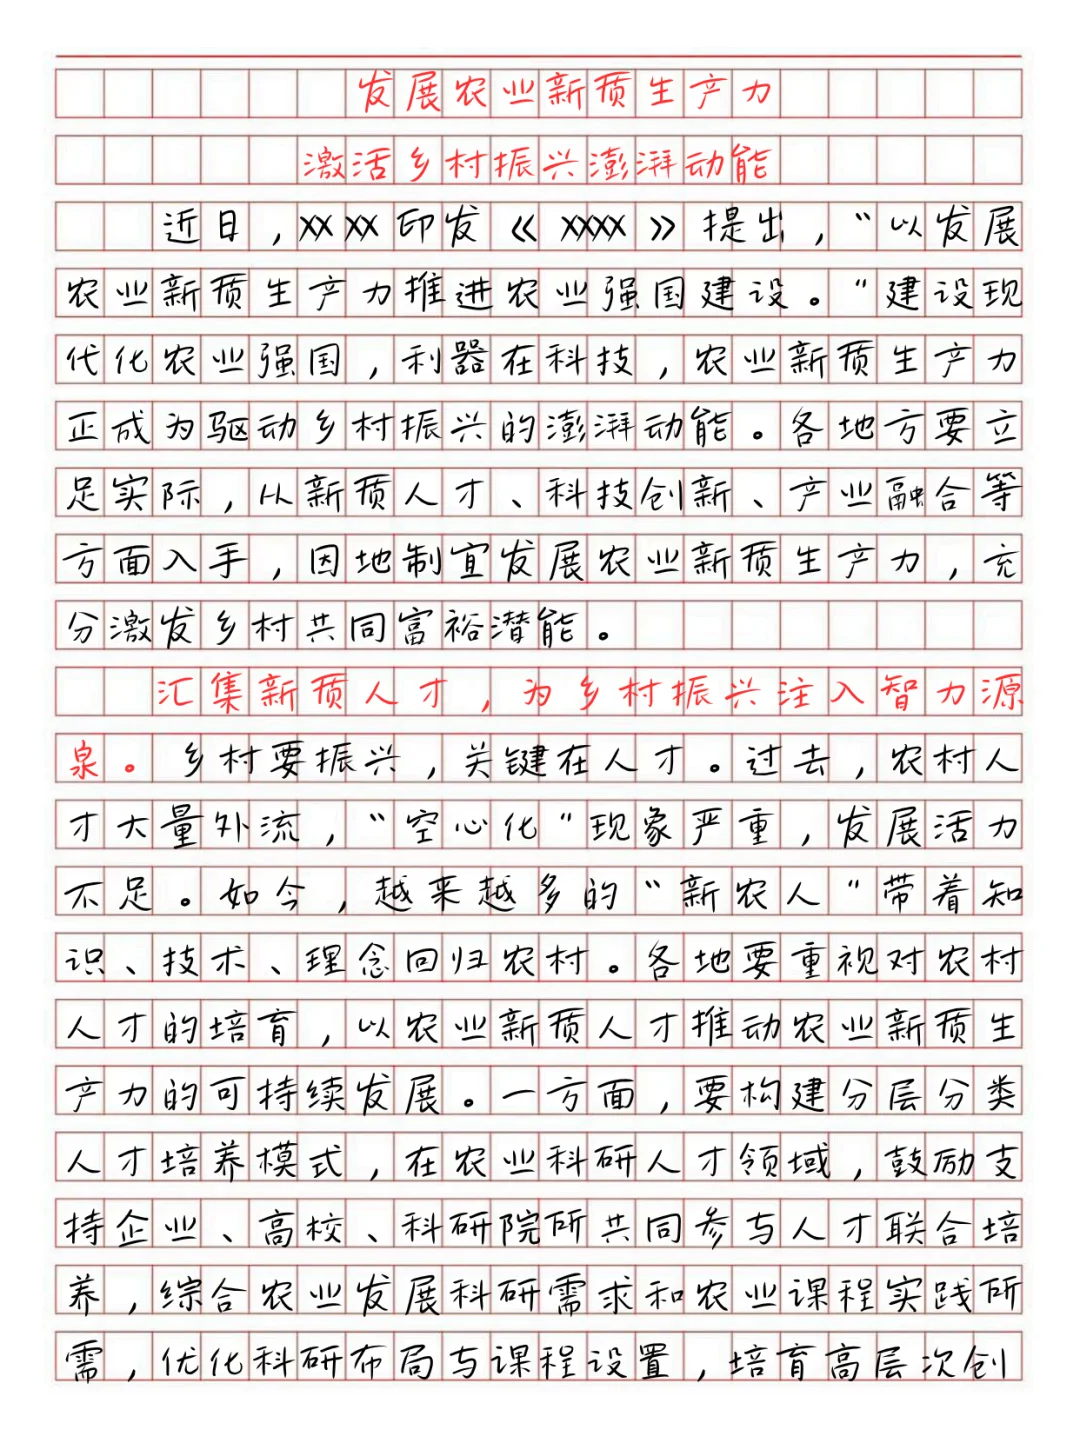 发展农业新质生产力
激活乡村振兴澎湃动能
近日，XXXX印发《XXXX》提出，“以发展
农业新质生产力推进农业强国建设。“建设现
代化农业强国，利器在科技，农业新质生产力
正成为驱动乡村振兴的澎湃动能。各地方要立
足实际，从新质人才、科技创新、产业融合等
方面入手，因地制宜发展农业新质生产力，充
分激发乡村共同富裕潜能。
汇集新质人才，为乡村振兴注入智力源
泉。乡村要振兴，关键在人才。过去，农村人
才大量外流，“空心化“现象严重，发展活力
不足。如今，越来越多的“新农人“带着知
识、技术、理念回归农村。各地要重视对农村
人才的培育，以农业新质人才推动农业新质生
产力的可持续发展。一方面，要构建分层分类
人才培养模式，在农业科研人才领域，鼓励支
持企业、高校、科研院所共同参与人才联合培
养，综合农业发展科研需求和农业课程实践所
需，优化科研布局与课程设置，培育高层次创